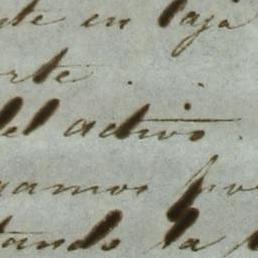 te en caja
rte.
del activo
gamos por
tando la